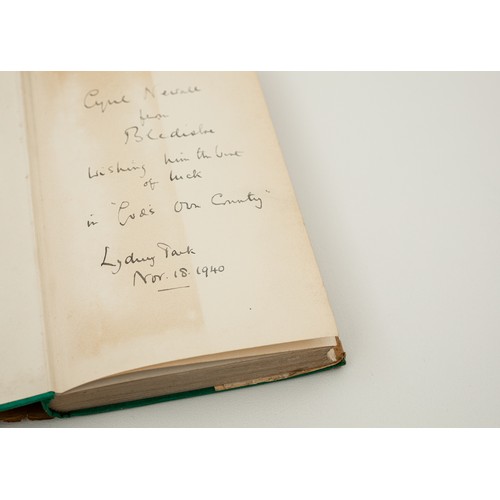 Cyril Newall
from
Bledisloe
Wishing him the best
of luck
in "God's Own Country"
Lydney Park
Nov. 18. 1940